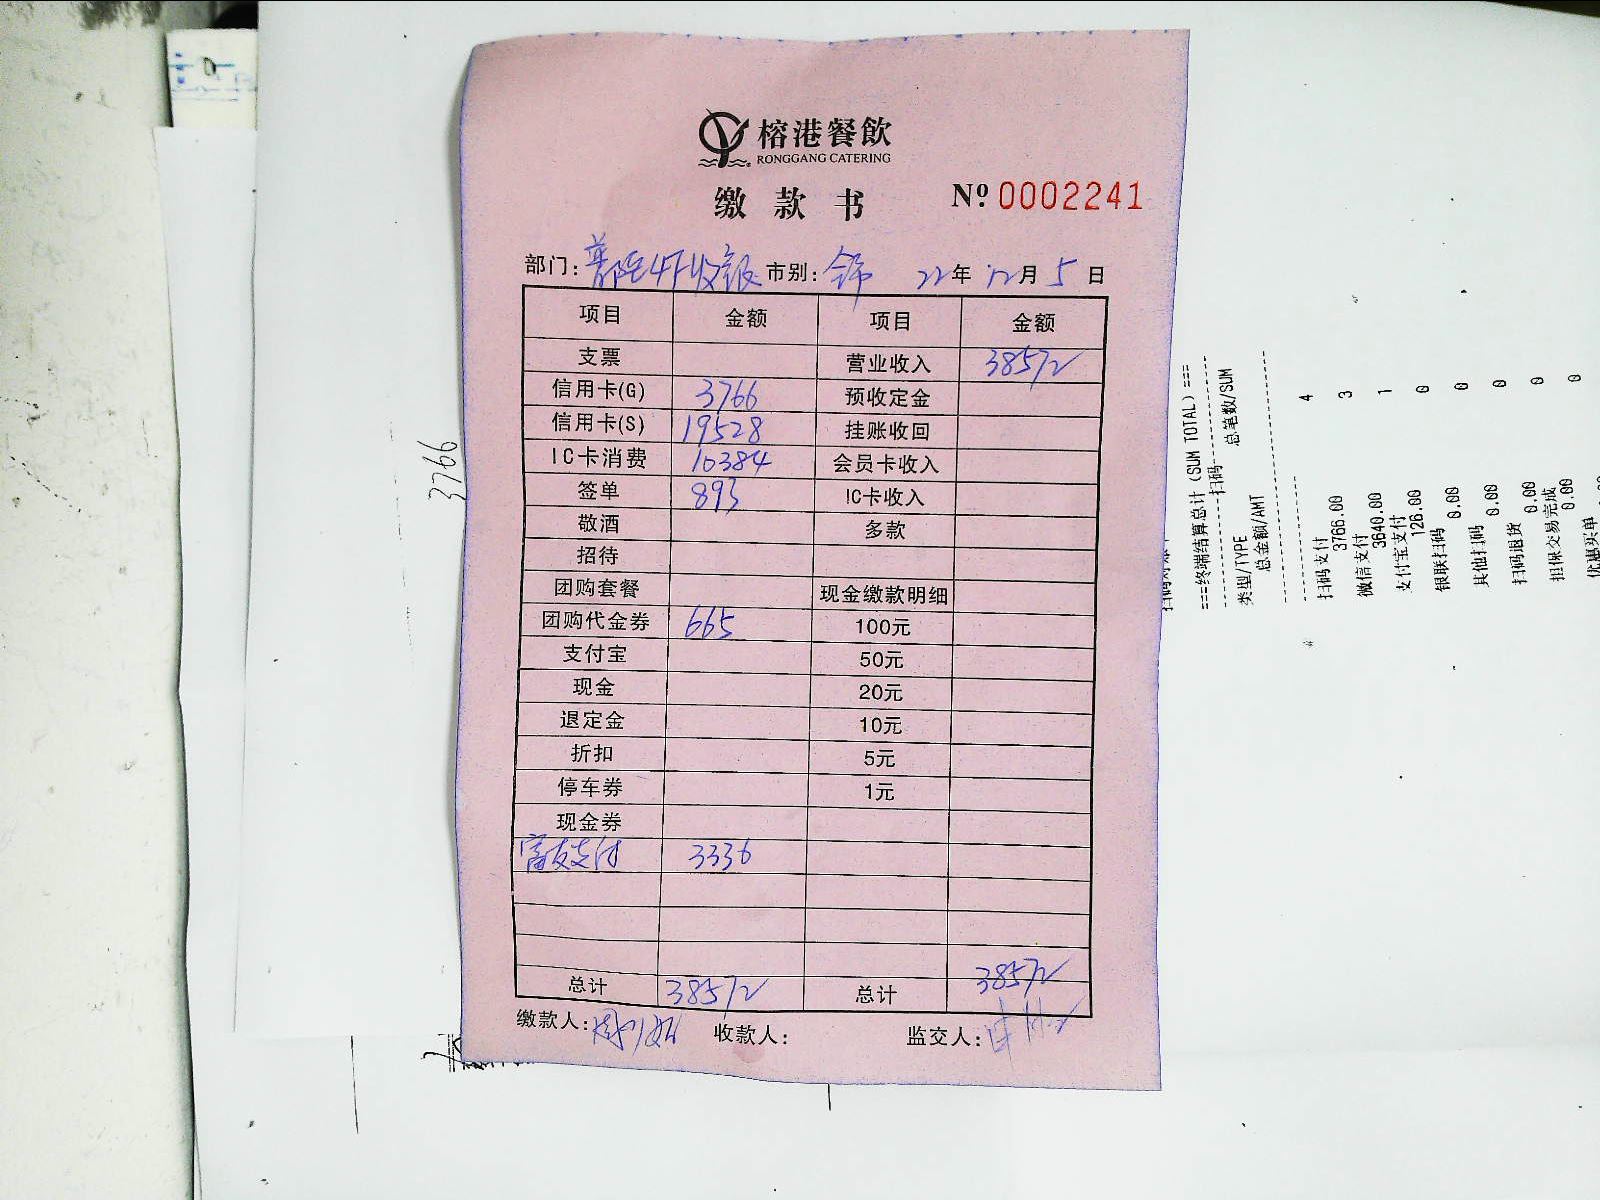 榕港餐飲
RONGGANG CATERING
缴款书 Nº 0002241
部门: 普陀4F收银 市别: 全市 22年12月5日
项目 金额 项目 金额
支票 营业收入 38572
信用卡(G) 3766 预收定金
信用卡(S) 19528 挂账收回
IC卡消费 10384 会员卡收入
签单 893 IC卡收入
敬酒 多款
招待
团购套餐 现金缴款明细
团购代金券 665 100元
支付宝 50元
现金 20元
退定金 10元
折扣 5元
停车券 1元
现金券
富友支付 3336
总计 38572 总计 38572
缴款人: 收款人: 监交人:
3766
===终端结算总计(SUM TOTAL)===
扫码
类型/TYPE 总笔数/SUM
总金额/AMT
扫码支付 4
3766.00
微信支付 3
3640.00
支付宝支付 1
126.00
银联扫码 0
0.00
其他扫码 0
0.00
扫码退货 0
0.00
担保交易完成 0
0.00
优惠买单 0